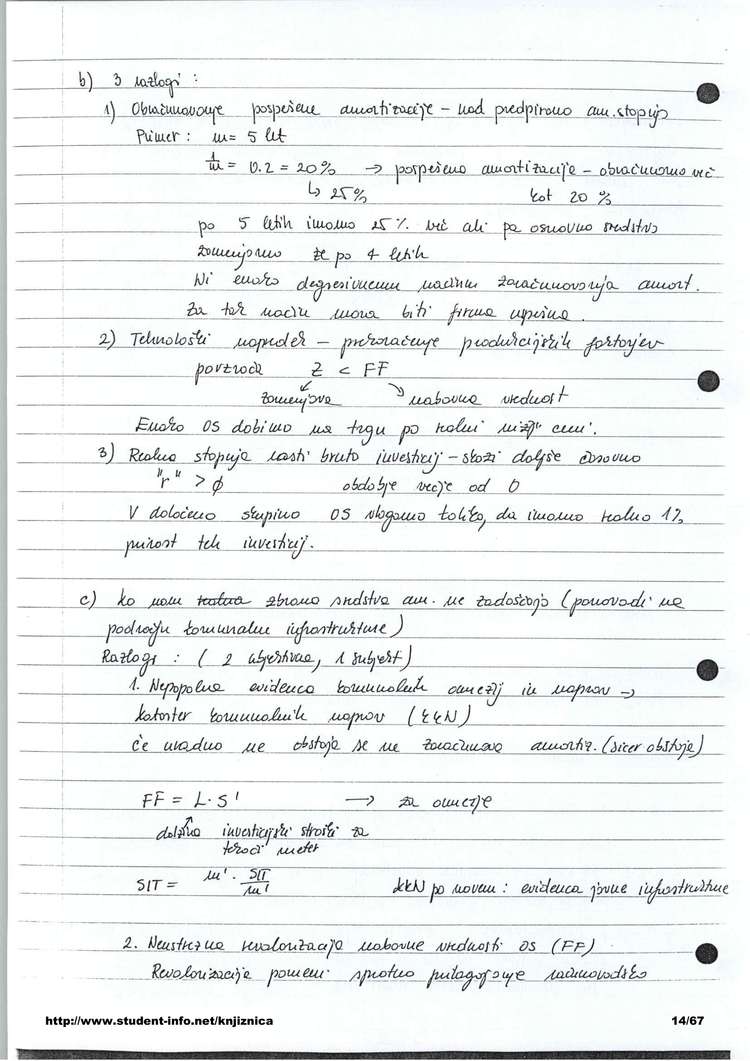 b) 3 razlogi :
1) Obračunavanje pospešene amortizacije – nad predpisano am. stopnjo
Primer : m = 5 let
1/m = 0.2 = 20% → pospešena amortizacija – obračunamo več
↳ 25% kot 20 %
po 5 letih imamo 25 % več ali pa osnovno sredstvo
zamenjamo že po 4 letih
Ni enako degresivnemu načinu zaračunavanja amort.
Za tak način mora biti firma uspešna.
2) Tehnološki napredek – preraščanje produkcijskih faktorjev
povzroča Z < FF
zamenjava nabavna vrednost
Enako OS dobimo na trgu po realni nižji ceni.
3) Realna stopnja rasti bruto investicij – skozi daljše časovno
"r" > ϕ obdobje večje od 0
V določeno skupino OS vlagamo toliko, da imamo realno
teh investicij.
c) ko nam zbrana sredstva am. ne zadoščajo (ponavadi na
področju komunalne infrastrukture)
Razlogi : ( 2 objektivna, 1 subjekt)
1. Nepopolna evidenca komunalnih omrežij in naprav →
kataster komunalnih naprav (KKN)
če uradno ne obstaja se ne zaračunava amortiz. (sicer obstaja)
FF = L · S' → za omrežje
dolžina investicijski stroški za
tekoči meter
SIT = m' · SIT/m' KKN po novem : evidenca javne infrastrukture
2. Neustrezna revalorizacija nabavne vrednosti OS (FF)
Revalorizacija pomeni sprotno prilagajanje računovodsko
http://www.student-info.net/knjiznica 14/67